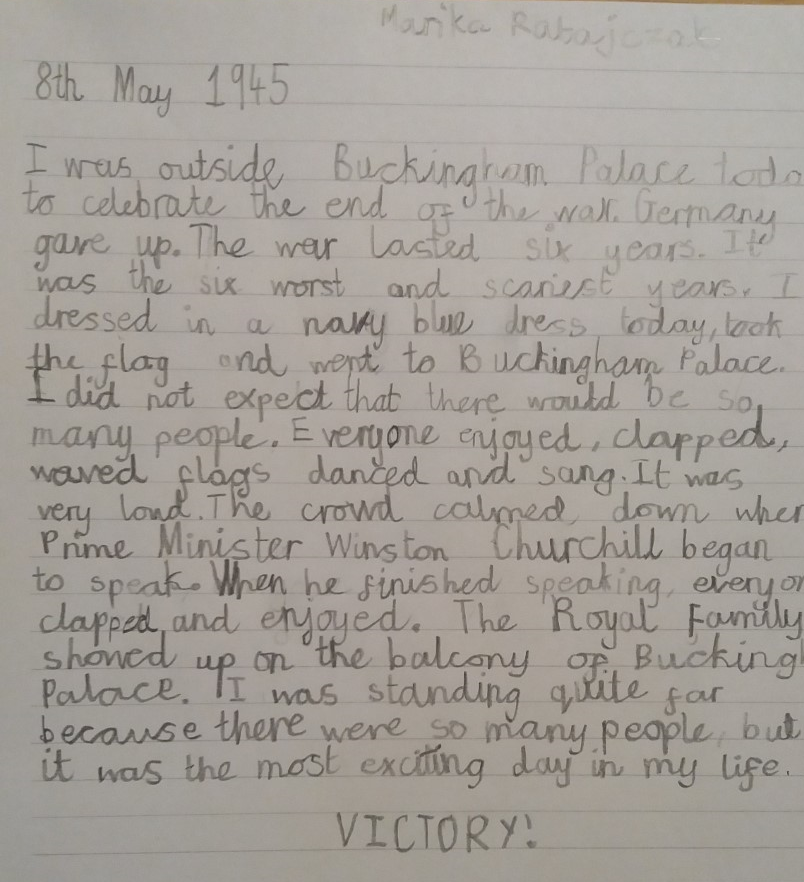 Marika Rabajczak
8th May 1945
I was outside Buckingham Palace toda
to celebrate the end of the war. Germany
gave up. The war lasted six years. It
was the six worst and scariest years. I
dressed in a navy blue dress today, took
the flag and went to Buckingham Palace.
I did not expect that there would be so
many people. Everyone enjoyed, clapped,
waved flags danced and sang. It was
very loud. The crowd calmed down when
Prime Minister Winston Churchill began
to speak. When he finished speaking, everyon
clapped and enjoyed. The Royal Family
showed up on the balcony of Bucking
Palace. I was standing quite far
because there were so many people, but
it was the most exciting day in my life.
VICTORY!